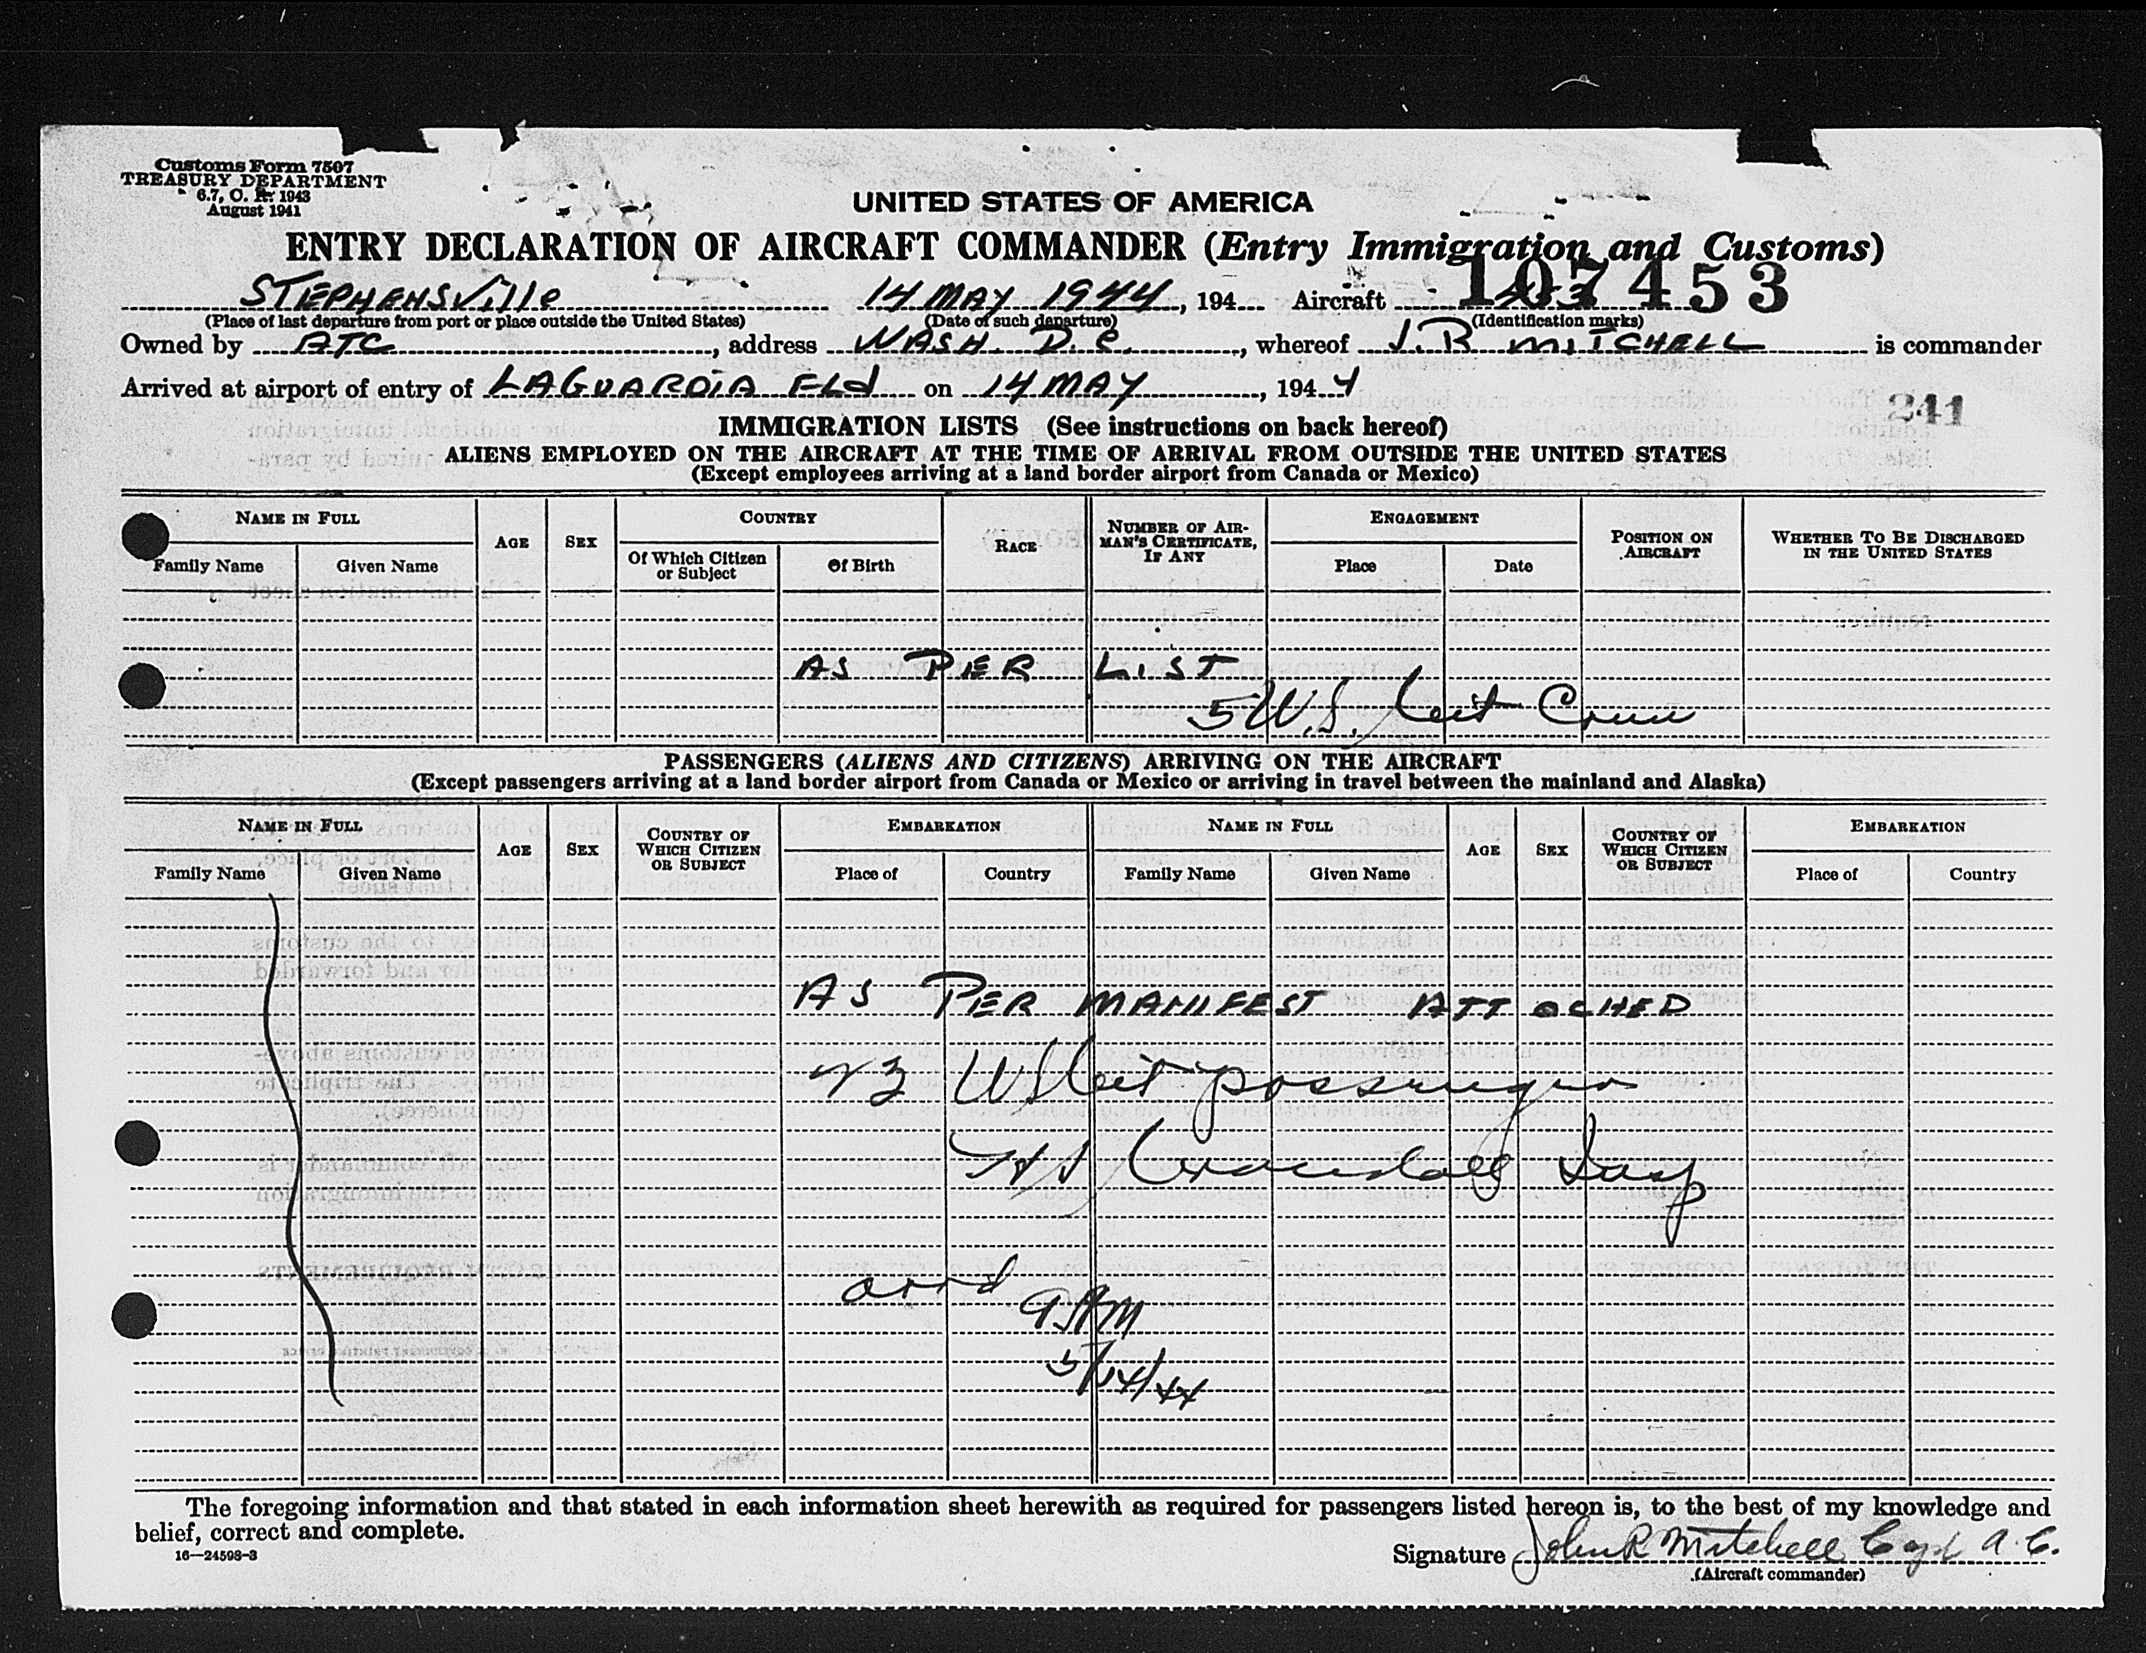 Customs Form 7507
TREASURY DEPARTMENT
6.7, O. R. 1943
August 1941
UNITED STATES OF AMERICA
ENTRY DECLARATION OF AIRCRAFT COMMANDER (Entry Immigration and Customs)
STEPHENSVille 14 MAY 1944, 194 Aircraft 107453
(Place of last departure from port or place outside the United States) (Date of such departure) (Identification marks)
Owned by ATC, address WASH. D.C., whereof J.R MITCHELL is commander
Arrived at airport of entry of LAGUARDIA FLd on 14 MAY, 194 4
241
IMMIGRATION LISTS (See instructions on back hereof)
ALIENS EMPLOYED ON THE AIRCRAFT AT THE TIME OF ARRIVAL FROM OUTSIDE THE UNITED STATES
(Except employees arriving at a land border airport from Canada or Mexico)
NAME IN FULL AGE SEX COUNTRY RACE NUMBER OF AIRMAN'S CERTIFICATE, IF ANY ENGAGEMENT POSITION ON AIRCRAFT WHETHER TO BE DISCHARGED IN THE UNITED STATES
Family Name Given Name Of Which Citizen or Subject Of Birth Place Date
AS PER LIST
5 U.S. Cit Crew
PASSENGERS (ALIENS AND CITIZENS) ARRIVING ON THE AIRCRAFT
(Except passengers arriving at a land border airport from Canada or Mexico or arriving in travel between the mainland and Alaska)
NAME IN FULL AGE SEX COUNTRY OF WHICH CITIZEN OR SUBJECT EMBARKATION NAME IN FULL AGE SEX COUNTRY OF WHICH CITIZEN OR SUBJECT EMBARKATION
Family Name Given Name Place of Country Family Name Given Name Place of Country
AS PER MANIFEST ATTACHED
23 US Cit passengers
Crandall Insp
arrd
9 AM
5/14/44
The foregoing information and that stated in each information sheet herewith as required for passengers listed hereon is, to the best of my knowledge and
belief, correct and complete.
16—24598-3
Signature John R Mitchell Capt A.C.
(Aircraft commander)